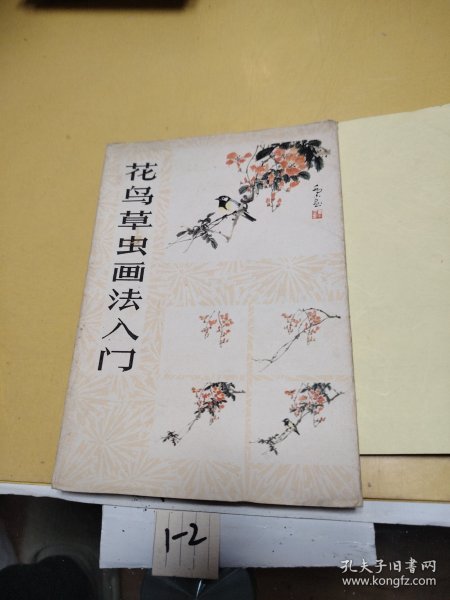 花鸟草虫画法入门
1-2
孔夫子旧书网
www.kongfz.com